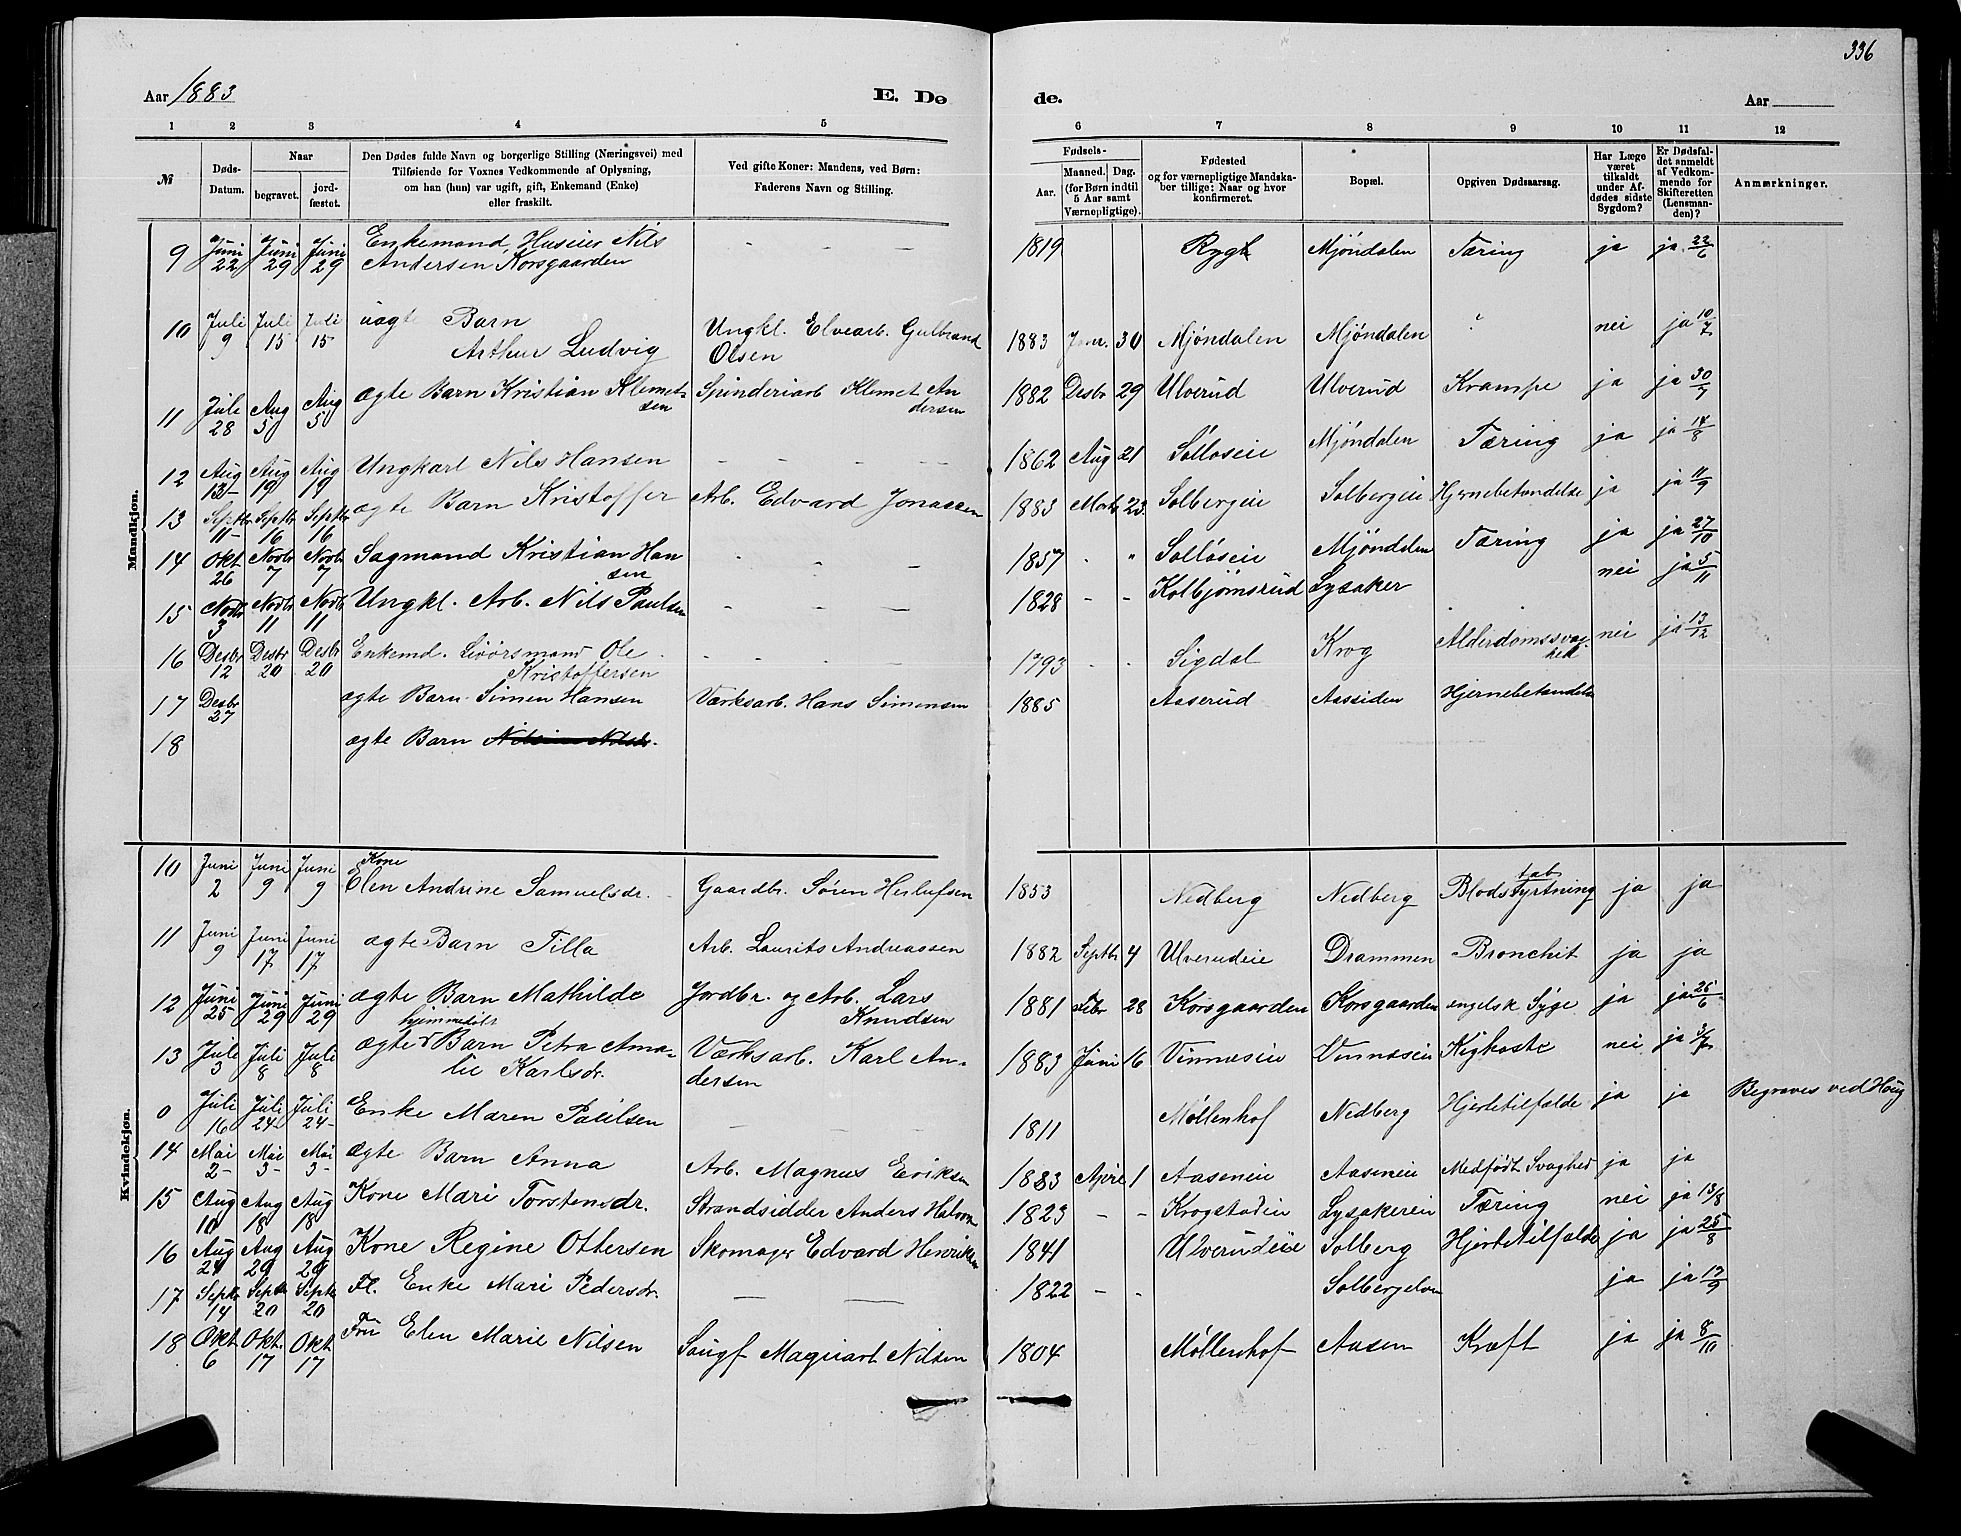 336
Aar 1883 E. Dø de. Aar
1 2 3 4 5 6 7 8 9 10 11 12
№ Døds-Datum. Naar begravet. jordfæstet. Den Dødes fulde Navn og borgerlige Stilling (Næringsvei) med Tilføiende for Voxnes Vedkommende af Oplysning, om han (hun) var ugift, gift, Enkemand (Enke) eller fraskilt. Ved gifte Koner: Mandens, ved Børn: Faderens Navn og Stilling. Fødsels- Aar. Maaned. Dag. (for Børn indtil 5 Aar samt Værnepligtige). Fødested og for værnepligtige Mandskaber tillige: Naar og hvor konfirmeret. Bopæl. Opgiven Dødsaarsag. Har Læge været tilkaldt under Afdødes sidste Sygdom? Er Dødsfaldet anmeldt af Vedkommende for Skifteretten (Lensmanden)? Anmærkninger.
Mandkjøn.
9 Juni 22 Juni 29 Juni 29 Enkemand, Huseier Nils Andersen Korsgaarden - - - 1819 Rygh Mjöndalen Tæring ja ja 22/6
10 Juli 9 Juli 15 Juli 15 uægte Barn Arthur Ludvig Ungkl. Elvearb. Gulbrand Olsen 1883 Janr. 30 Mjöndalen Mjöndalen ? nei ja 10/7
11 Juli 28 Aug 5 Aug 5 ægte Barn Kristian Klemetsen Spinderiarb Klemet Andersen 1882 Desbr 29 Ulverud Ulverud Krampe ja ja 30/7
12 Aug 13 Aug 19 Aug 19 Ungkarl Nils Hansen - - - - 1862 Aug 21 Sölloseie Mjöndalen Tæring ja ja 14/8
13 Septbr 11 Septbr 16 Septbr 16 ægte Barn Kristoffer Arb. Edvard Jonassen 1883 Marts 23 Solbergeie Solbergeie Hjernebetændelse ja ja 11/9
14 Okt 26 Novbr 7 Novbr 7 Sagmand Kristian Hansen - - - 1857 " Sollöseie Mjöndalen Tæring ja ja 27/10
15 Novbr 3 Novbr 11 Novbr 11 Ungkl. Arb. Nils Paulsen - - - 1828 - - Kolbjørnsrud Lysaker nei ja 5/11
16 Desbr 12 Desbr 20 Desbr 20 Enkemd. Ole Kristoffersen - - - - 1793 - - Sigdal Krog Alderdomssvaghed nei ja 13/12
17 Desbr 27 ægte Barn Simen Hansen Værksarb. Hans Simensen 1885 Aaserud Aassiden Hjernebetændelse
18 ægte Barn
Kvindekjøn.
10 Juni 2 Juni 9 Juni 9 Kone Elen Andrine Samuelsdr. Gaardbr. Sören Herlufsen 1853 Nedberg Nedberg Blodstyrtning tab ja ja
11 Juni 9 Juni 17 Juni 17 ægte Barn Tilla Arb. Laurits Andreassen 1882 Septbr 4 Ulverudeie Drammen Bronchit ja ja
12 Juni 25 Juni 29 Juni 29 ægte Barn Mathilde Jordbr. og Arb. Lars Knudsen 1881 Febr 28 Korsgaarden Korsgaarden engelsk Syge ja ja 25/6
13 Juli 3 Juli 8 Juli 8 ægte hjemmedöbt Barn Petra Amalie Karlsdr. Værksarb. Karl Andersen 1883 Juni 16 Vinnæseie Vinnæseie Kighoste nei ja 3/7
0 Juli 16 Juli 24 Juli 24 Enke Maren Paulsen - - - 1811 Møllenhof Nedberg Hjertetilfælde ja ja Begraves ved Houg
14 Mai 2 Mai 3 Mai 3 ægte Barn Anna Arb. Magnus Eriksen 1883 April 1 Aaseneie Aaseneie Medfödt Svaghed ja ja
15 Aug 10 Aug 18 Aug 18 Kone Mari Torstensdr. Strandsidder Anders Halvorsen 1823 - - Krogstadeie Lysakereie Tæring nei ja 13/8
16 Aug 24 Aug 29 Aug 29 Kone Regine Ottersen Skomager Edvard Henriksen 1841 Ulverudeie Solberg Hjertetilfælde ja ja 25/8
17 Septbr 14 Septbr 20 Septbr 20 Fl. Enke Mari Pedersdr. - - 1822 - - Solbergelven ja ja 17/9
18 Okt 6 Okt. 17 Okt 17 Fru Elen Marie Nilsen Sougf Magnart Nilsen 1804 Møllenhof Aasen Kræft ja ja 8/10